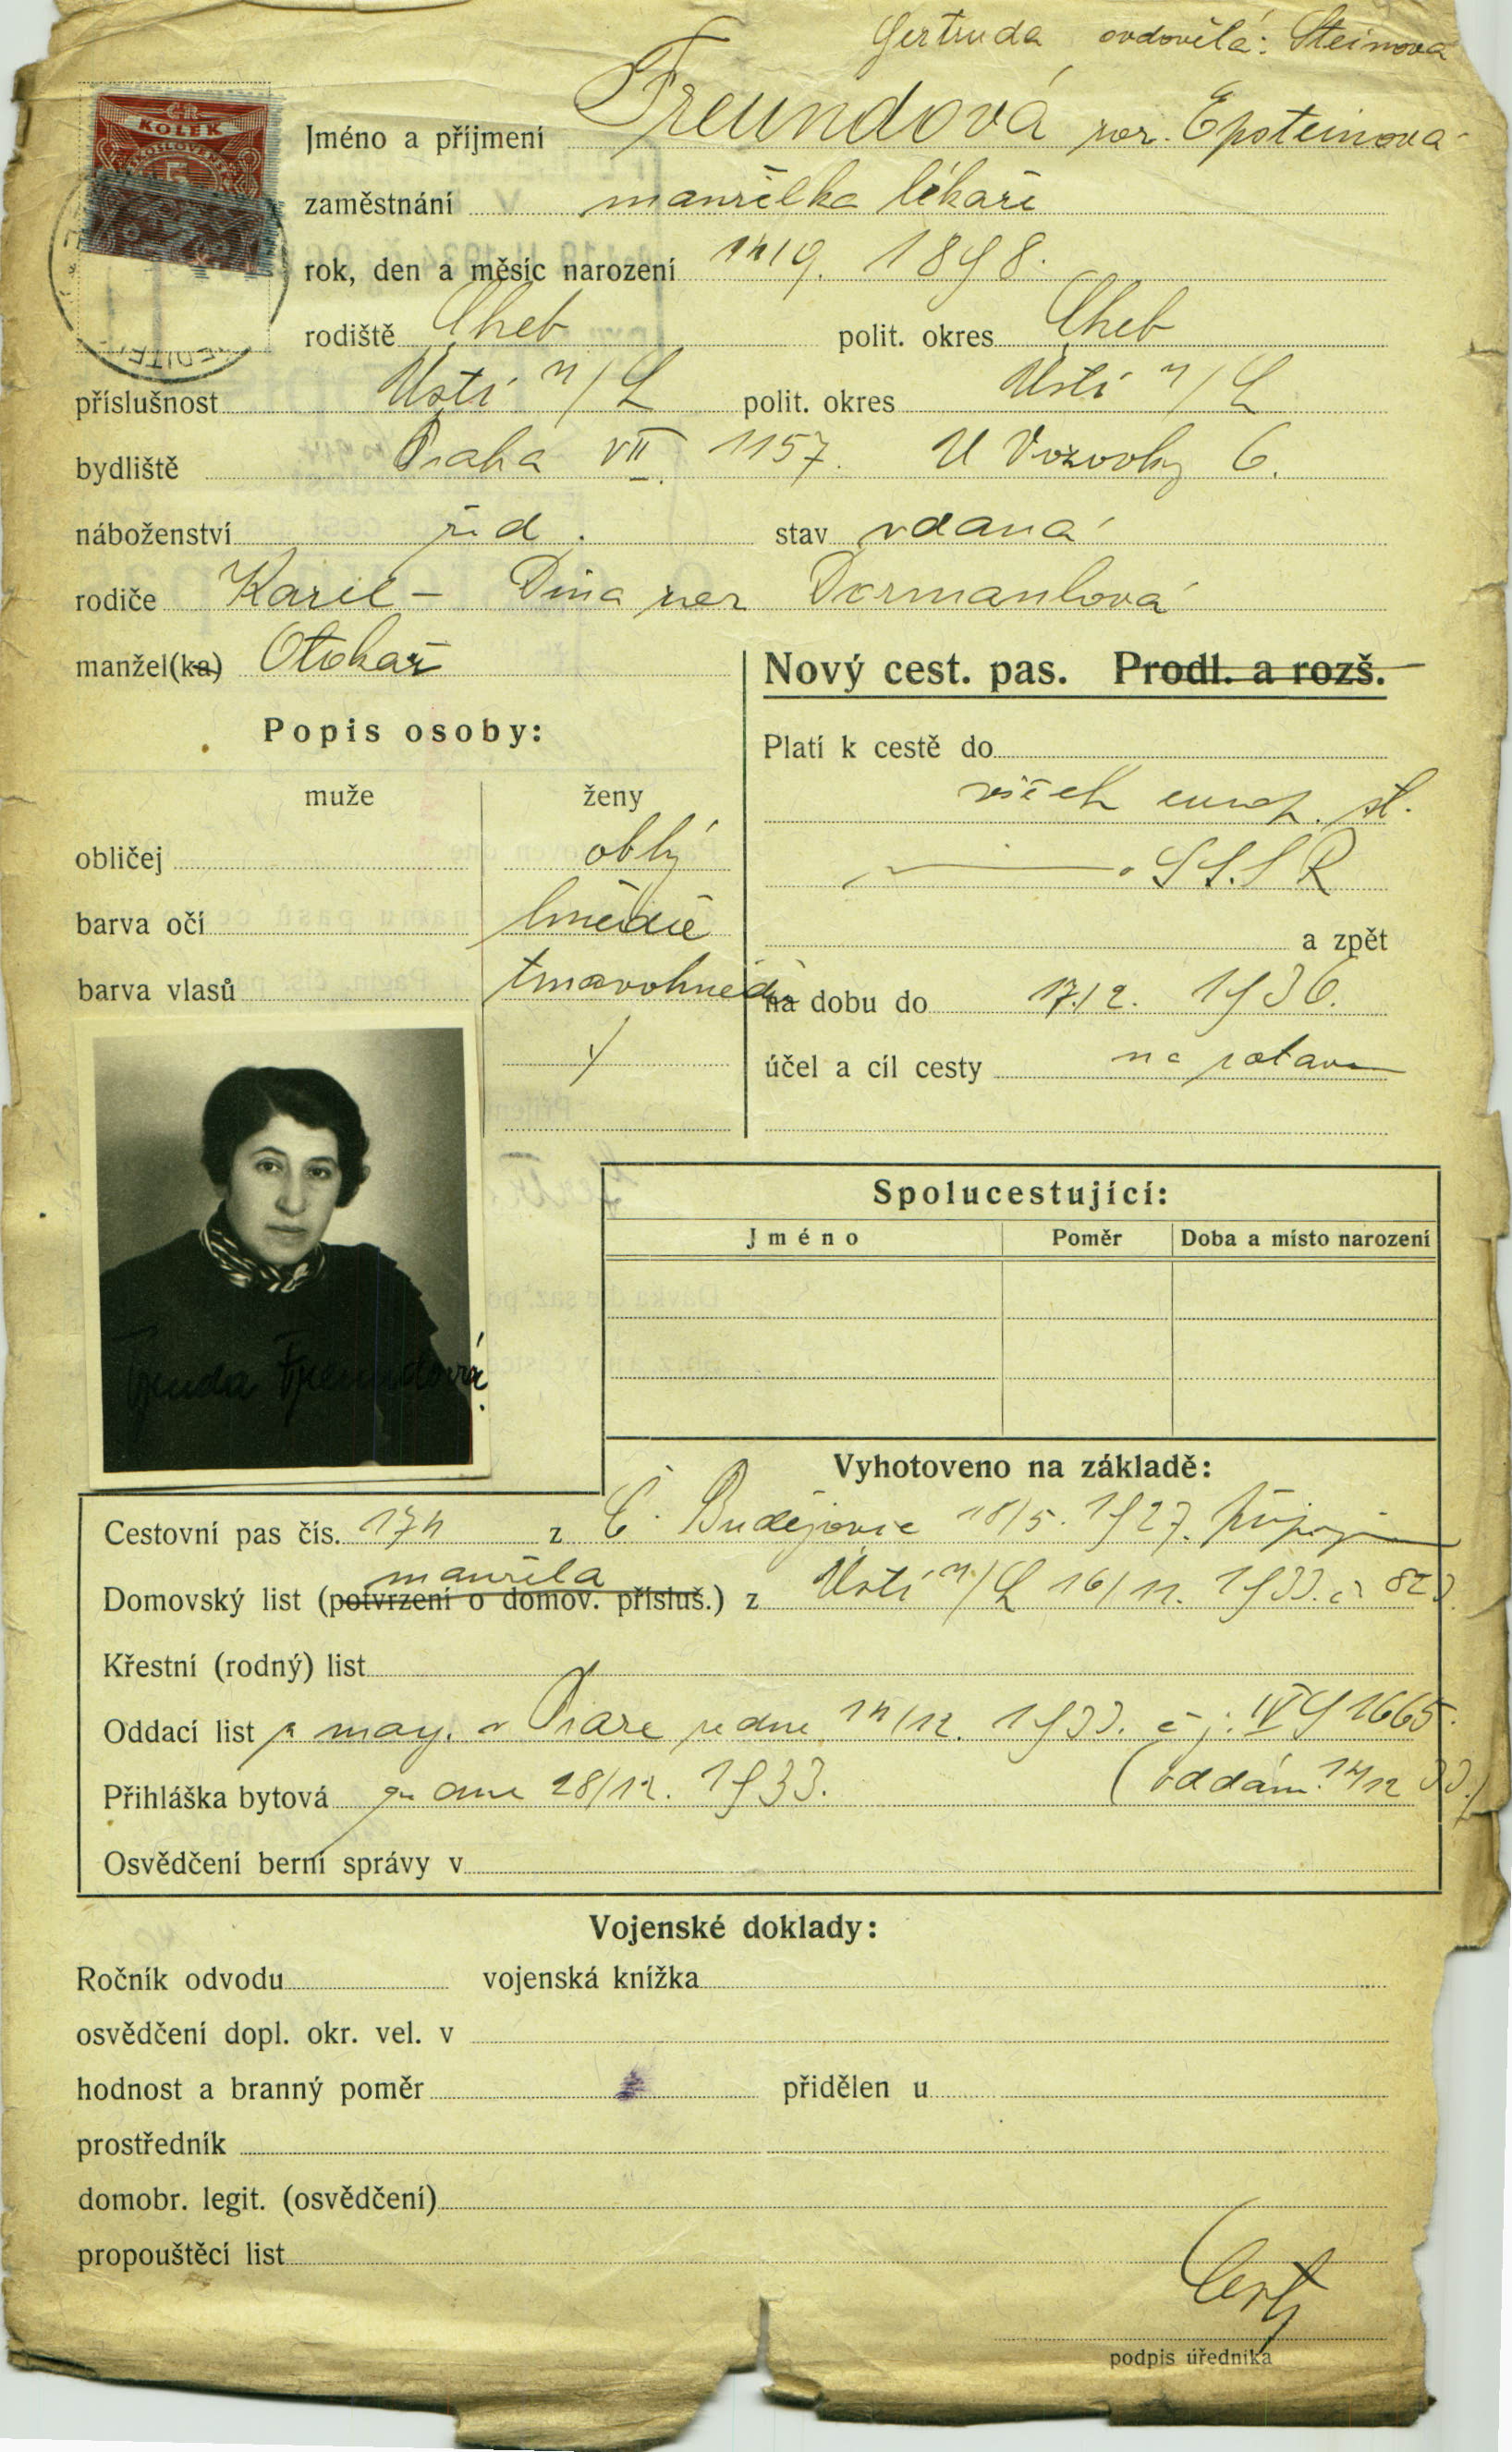 Gertruda ovdovělá: Steinova
Jméno a příjmení Freundová roz. Epsteinová
ČR
KOLEK
5
zaměstnání manželka lékaře
rok, den a měsíc narození 1898.
rodiště Cheb polit. okres Cheb
příslušnost Ústí n/L polit. okres Ústí n/L
bydliště Praha VII 1157. U Vozovky 6.
náboženství žid. stav vdaná
rodiče Karel – roz
manžel(ka) Otokar
Nový cest. pas. Prodl. a rozš.
Popis osoby:
Platí k cestě do
muže ženy
všech europ. st.
obličej oblý
SSSR
barva očí hnědé
a zpět
barva vlasů tmavohnědé
na dobu do 17./2. 1936.
účel a cíl cesty
Spolucestující:
Jméno Poměr Doba a místo narození
Freundová
Vyhotoveno na základě:
Cestovní pas čís. z Č. Budějovic 18/5. 1927.
manžela
Domovský list (potvrzení o domov. přísluš.) z Ústí n/L 16/11. 1933.
Křestní (rodný) list
Oddací list v Praze ze dne 1933. č j. IV 1665.
Přihláška bytová ze dne 28/12. 1933.
Osvědčení berní správy v
Vojenské doklady:
Ročník odvodu vojenská knížka
osvědčení dopl. okr. vel. v
hodnost a branný poměr přidělen u
prostředník
domobr. legit. (osvědčení)
propouštěcí list
podpis úředníka